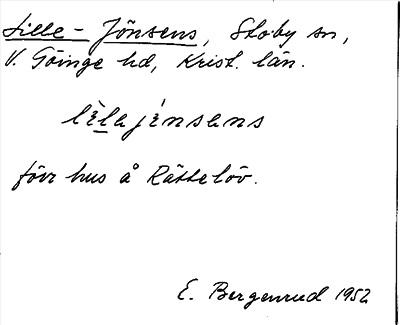 Lille-Jönsens, Stoby sn,
V. Göinge hd, Krist. län.
lèlajénsens
förr hus å Rättelöv.
E. Bergenrud 1952